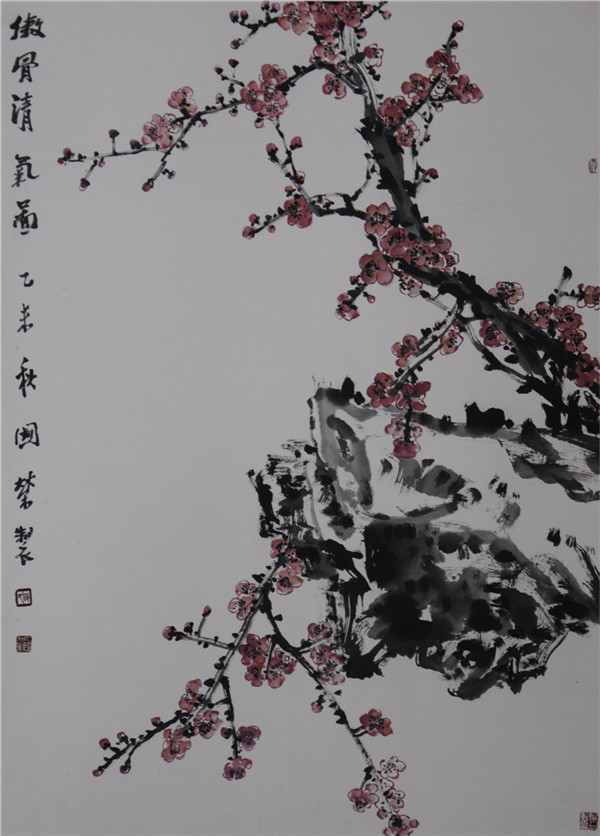 傲骨清氣圖 乙未秋 國榮製